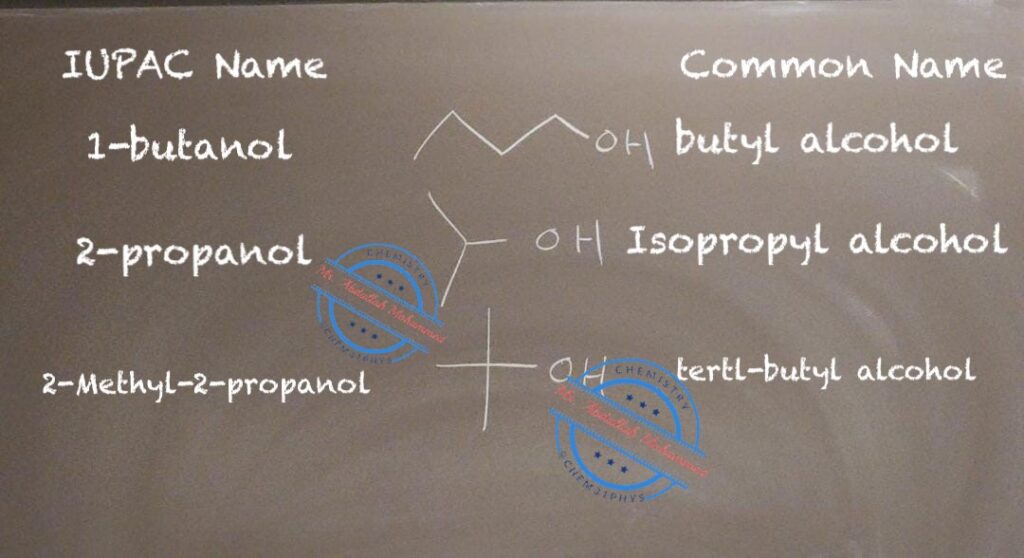 IUPAC Name Common Name
1-butanol OH butyl alcohol
2-propanol OH Isopropyl alcohol
CHEMISTRY
Mr. Abdullah Mohammed
CHEM31PHYS
2-Methyl-2-propanol OH tertl-butyl alcohol
CHEMISTRY
Mr. Abdullah Mohammed
@CHEM31PHYS